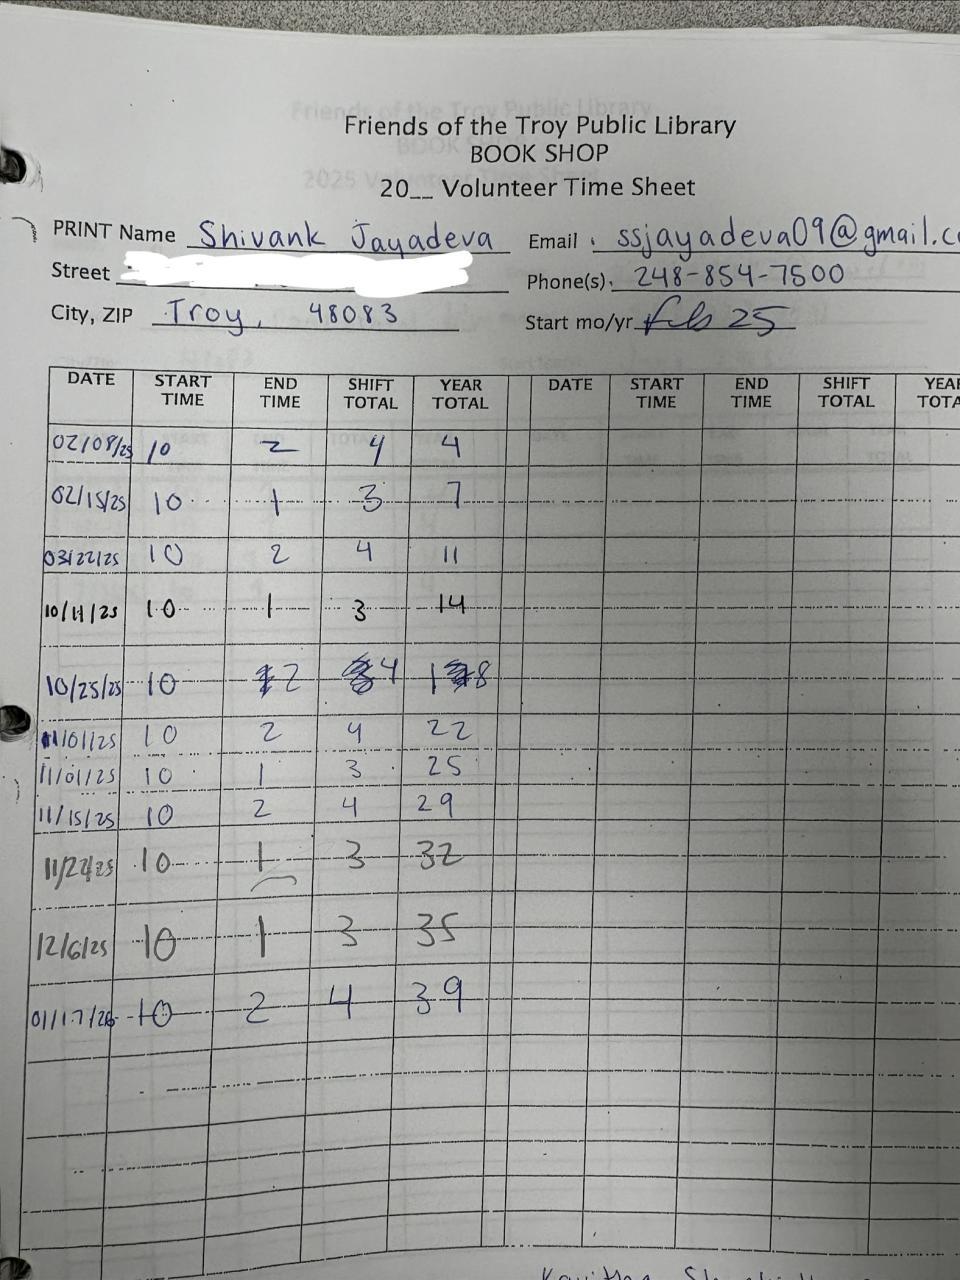 Friends of the Troy Public Library
BOOK SHOP
20__ Volunteer Time Sheet
PRINT Name Shivank Jayadeva Email ssjayadeva09@gmail.c
Street Phone(s). 248-854-7500
City, ZIP Troy, 48083 Start mo/yr Feb 25
DATE START TIME END TIME SHIFT TOTAL YEAR TOTAL DATE START TIME END TIME SHIFT TOTAL YEAR TOTA
02/08/25 10 2 4 4
02/15/25 10 1 3 7
03/22/25 10 2 4 11
10/11/25 10 1 3 14
10/25/25 10 2 4 18
11/01/25 10 2 4 22
11/01/25 10 1 3 25
11/15/25 10 2 4 29
11/22/25 10 1 3 32
12/6/25 10 1 3 35
01/17/26 10 2 4 39